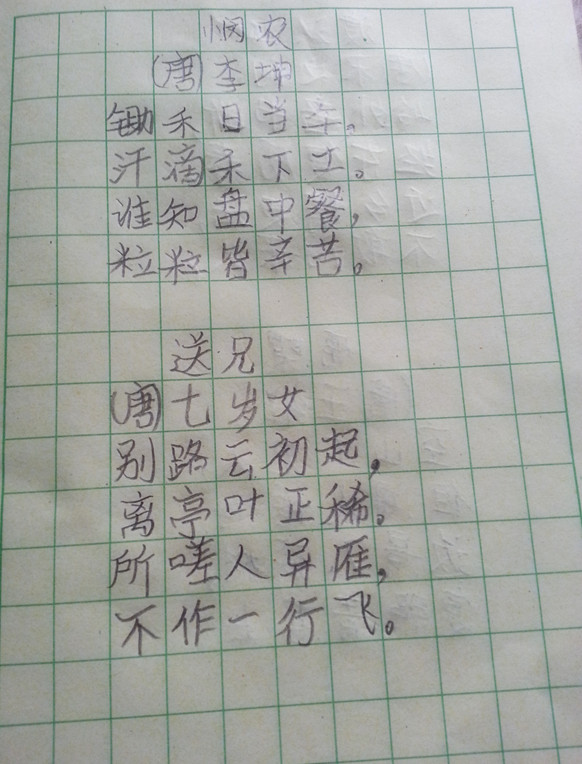 悯农
(唐)李坤
锄禾日当午。
汗滴禾下土。
谁知盘中餐,
粒粒皆辛苦。
送兄
(唐)七岁女
别路云初起,
离亭叶正稀。
所嗟人异雁,
不作一行飞。